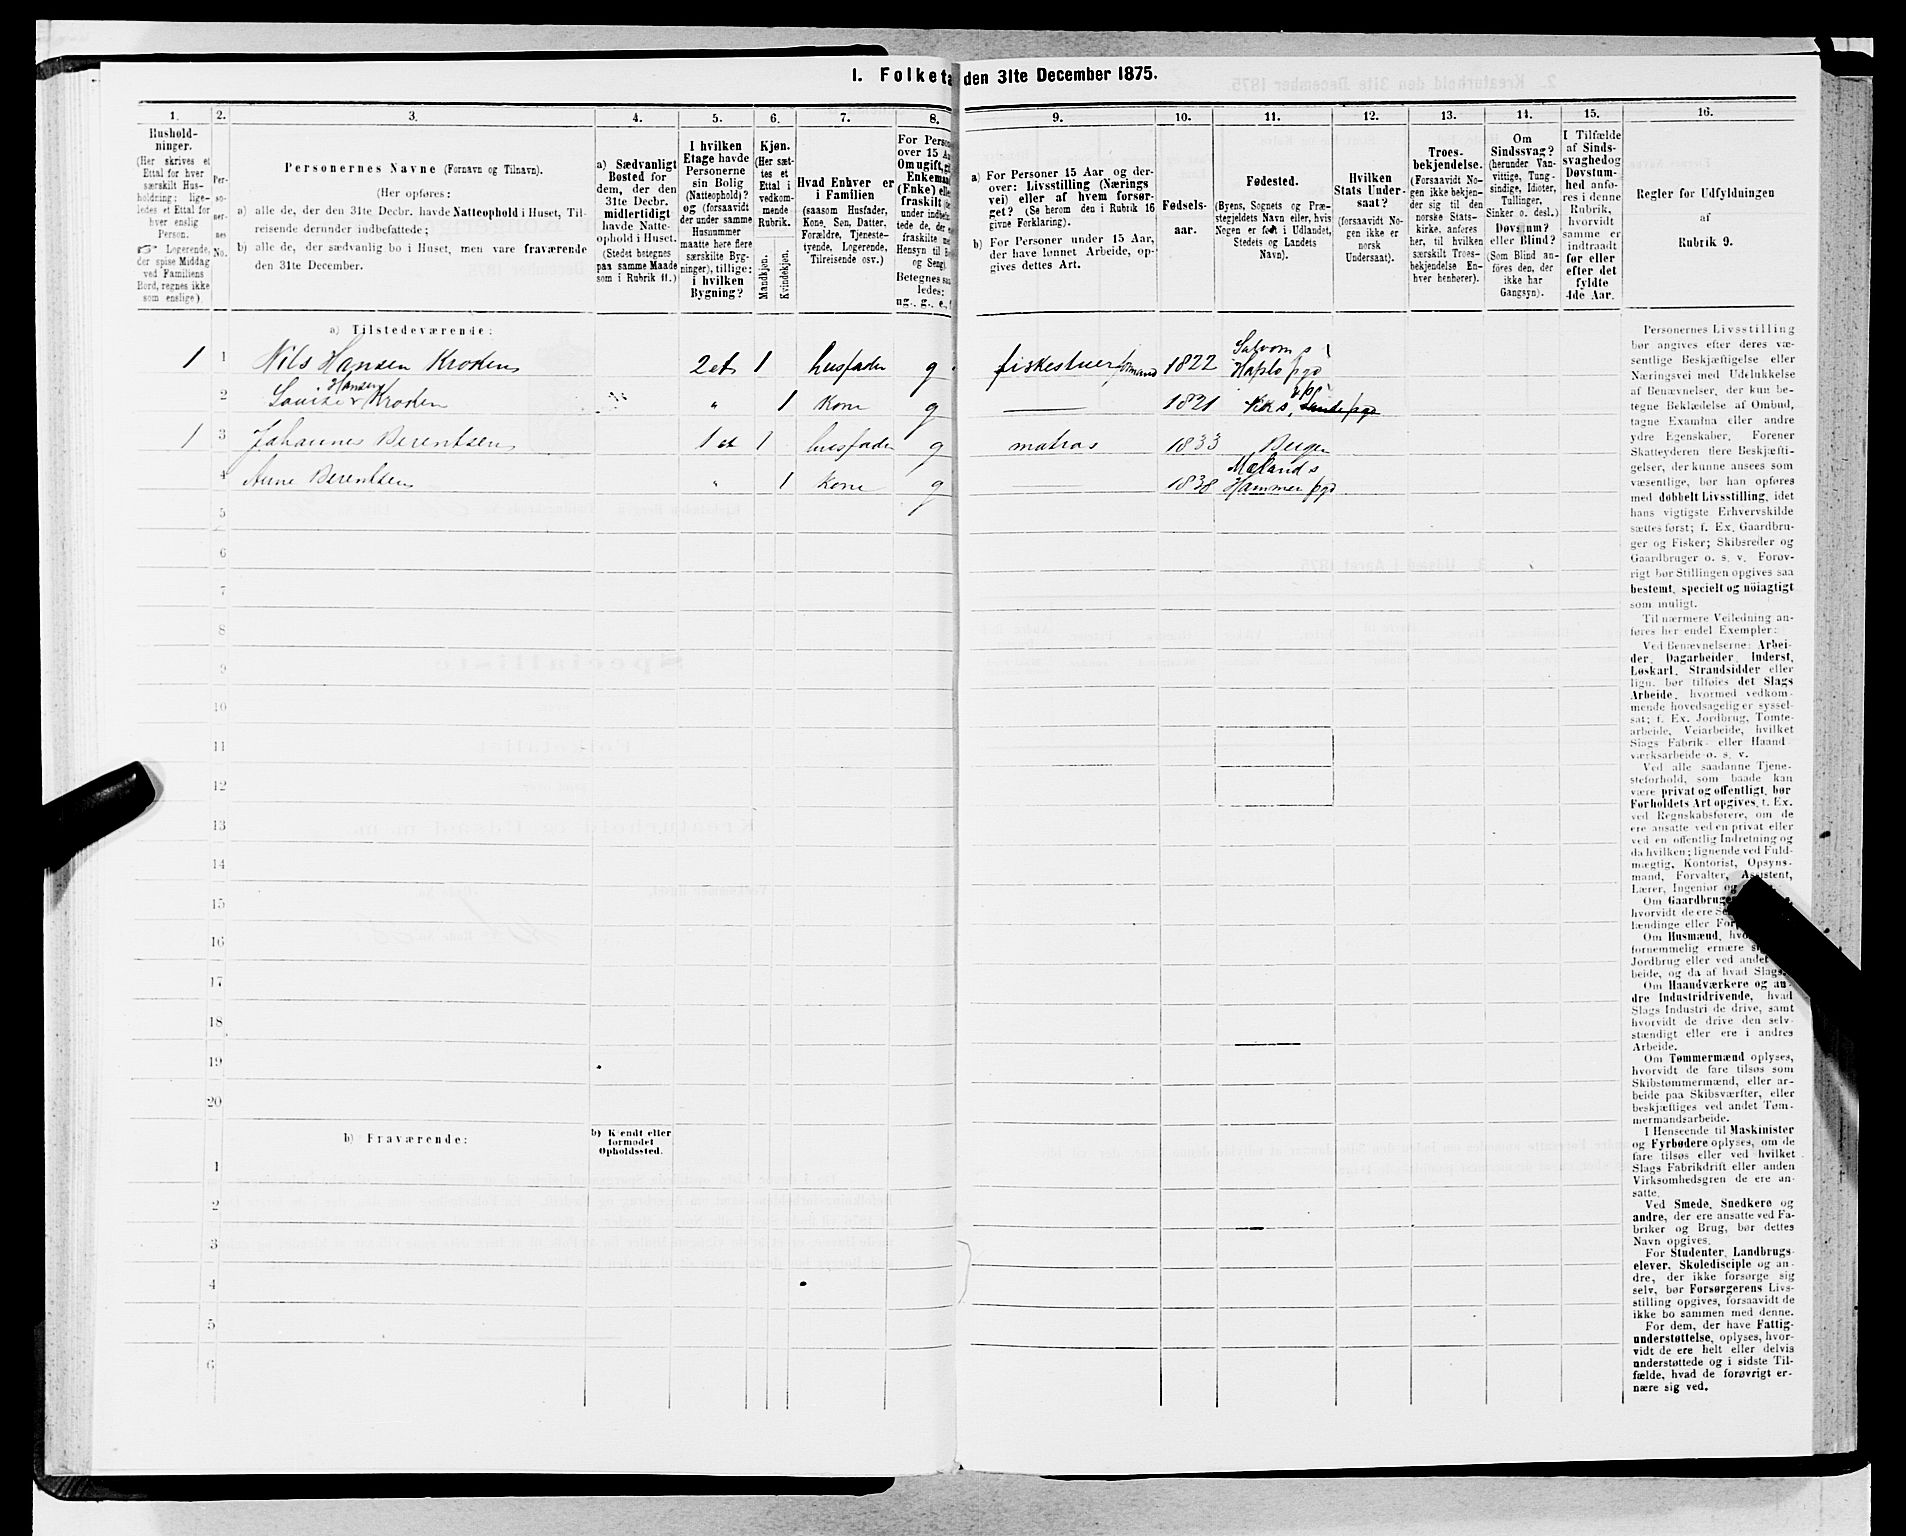 1. Folketa den 31te December 1875.
1. 2. 3. 4. 5. 6. 7. 8. 9. 10. 11. 12. 13. 14. 15. 16.
Hushold-
ninger.
(Her skrives et
Ettal for hver
særskilt Hus-
holdning; lige-
ledes et Ettal for
hver enslig
Person.
Logerende,
der spise Middag
ved Familiens
Bord, regnes ikke
som enslige).
Per-
so-
ner-
nes
No.
Personernes Navne (Fornavn og Tilnavn).
(Her opføres:
a) alle de, der den 31te Decbr. havde Natteophold i Huset, Til-
reisende derunder indbefattede;
b) alle de, der sædvanlig bo i Huset, men vare fraværende
den 31te December.
a) Sædvanligt
Bosted for
dem, der den
31te Decbr.
midlertidigt
havde Natte-
ophold i Huset.
(Stedet betegnes
paa samme Maade
som i Rubrik 11.)
I hvilken
Etage havde
Personerne
sin Bolig
(Natteophold)?
og (forsaavidt
der under samme
Husnummer
maatte here flere
særskilte Byg-
ninger), tillige:
i hvilken
Bygning?
Kjøn.
(Her sæt-
tes et
Ettal i
vedkom-
mende
Rubrik.
Mandkjøn.
Kvindekjøn.
Hvad Enhver er
i Familien
(saasom Husfader,
Kone, Søn, Datter,
Forældre, Tjeneste-
tyende, Logerende,
Tilreisende osv.)
For Person
over 15 Aa
Om ugift, gi
Enkemand
(Enke) elle
fraskilt
under indbef
tede de, der
fraskilte
Hensyn til B
og Seng).
Betegnes saa
ledes:
ug., g., e., f
a) For Personer 15 Aar og der-
over: Livsstilling (Nærings
vei) eller af hvem forsør-
get? (Se herom den i Rubrik 16
givne Forklaring).
b) For Personer under 15 Aar,
der have lønnet Arbeide, op-
gives dettes Art.
Fødsels-
aar.
Fødested.
(Byens, Sognets og Præ-
stegjeldets Navn eller, hvis
Nogen er født i Udlandet,
Stedets og Landets
Navn).
Hvilken
Stats Under-
saat?
(forsaavidt No-
gen ikke er
norsk
Undersaat).
Troes-
bekjendelse.
(Forsaavidt No-
gen ikke bekjen-
der sig til den
norske Stats-
kirke, anføres
her, til hvilken
særskilt Troes-
bekjendelse En-
hver henhører).
Om
Sindssvag?
(herunder Van-
vittige, Tung-
sindige, Idioter,
Tullinger,
Sinker o. desl.)
Døvstum?
eller Blind?
(Som Blind an-
føres den, der
ikke har
Gangsyn).
I Tilfælde
af Sinds-
svaghed og
Døvstum-
hed anfø-
res i denne
Rubrik,
hvorvidt
samme er
indtraadt
før eller
efter det
fyldte
4de Aar.
Regler for Udfyldningen
af
Rubrik 9.
a) Tilstedeværende:
1 1 Nils Hansen Kroken 2 et 1 husfader g fiskestuerformand 1822 Haplo pgd
2 Hansen Kroken " 1 Kone g 1821
1 3 Johannes Berentsen 1 et 1 husfader g matros 1833 Bergen
4 Anne Berentsen " 1 Kone g 1838 Mælands Hammer pgd
5
6
7
8
9
10
11
12
13
14
15
16
17
18
19
20
b) Fraværende:
b) Kjendt eller
formodet
Opholdssted.
1
2
3
4
5
6
Personernes Livsstilling
bør angives efter deres væ-
sentlige Beskjæftigelse eller
Næringsvei med Udelukkelse
af Benævnelser, der kun be-
tegne Beklædelse af Ombud,
tagne Examina eller andre
ydre Egenskaber. Forener
Skatteyderen flere Beskjæfti-
gelser, der kunne ansees som
væsentlige, bør han opføres
med dobbelt Livsstilling, idet
hans vigtigste Erhvervskilde
sættes først; f. Ex. Gaardbru-
ger og Fisker; Skibsreder og
Gaardbruger o. s. v. Forøv-
rigt bør Stillingen opgives saa
bestemt, specielt og nöiagtigt
som muligt.
Til nærmere Veiledning an-
føres her endel Exempler:
Ved Benævnelserne: Arbei-
der, Dagarbeider, Inderst,
Løskarl, Strandsidder eller
lign. bør tilføies det Slags
Arbeide, hvormed vedkom-
mende hovedsagelig er syssel-
sat; f. Ex. Jordbrug, Tomte-
arbeide, Veiarbeide, hvilket
Slags Fabrik- eller Haand-
værksarbeide o. s. v.
Ved alle saadanne Tjene-
steforhold, som baade kan
være privat og offentligt, bør
Forholdets Art opgives, t. Ex.
ved Regnskabsførere, om de
ere ansatte ved en privat eller
ved en offentlig Indretning og
da hvilken; lignende ved Fuld-
mægtig, Kontorist, Opsyns-
mand, Forvalter, Assistent,
Lærer, Ingeniør og
Om Gaardbruge
hvorvidt de ere Se
lændinge eller For
Om Husmænd, hvo
fornemmelig ernære s
Jordbrug eller ved andet
beide, og da af hvad Slags.
Om Haandværkere og an-
dre Industridrivende, hvad
Slags Industri de drive, samt
hvorvidt de drive den selv-
stændigt eller ere i andres
Arbeide.
Om Tømmermænd oplyses,
hvorvidt de fare tilsøs som
Skibstømmermænd, eller ar-
beide paa Skibsværfter, eller
beskjæftiges ved andet Tøm-
mermandsarbeide.
I Henseende til Maskinister
og Fyrbødere oplyses, om de
fare tilsøs eller ved hvilket
Slags Fabrikdrift eller anden
Virksomhedsgren de ere an-
satte.
Ved Smede, Snedkere og
andre, der ere ansatte ved Fa-
briker og Brug, bør dettes
Navn opgives.
For Studenter, Landbrugs-
elever, Skoledisciple og an-
dre, der ikke forsørge sig
selv, bør Forsørgerens Livs-
stilling opgives, forsaavidt de
ikke bo sammen med denne.
For dem, der have Fattig-
understøttelse, oplyses, hvor-
vidt de ere helt eller delvis
understøttede og i sidste Til-
fælde, hvad de forøvrigt er-
nære sig ved.